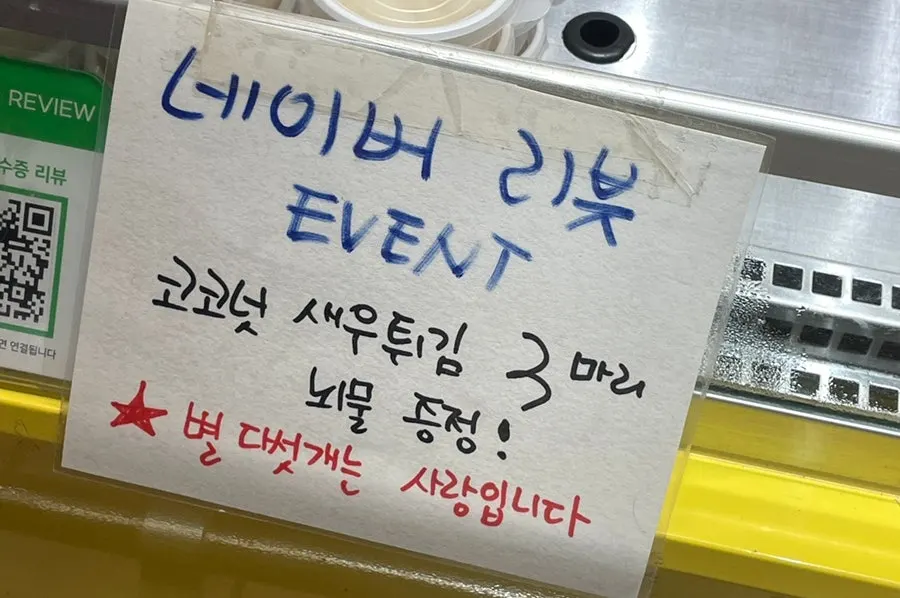 REVIEW
수증 리뷰
면 연결됩니다
네이버 리뷰
EVENT
코코넛 새우튀김 3마리
뇌물 증정!
★ 별 다섯개는 사랑입니다